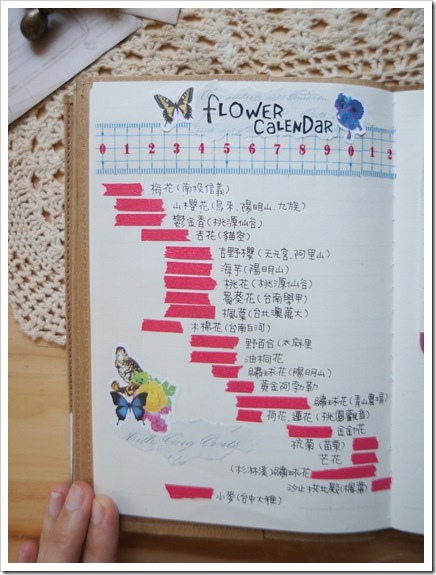 FLOWER
CALENDAR
0 1 2 3 4 5 6 7 8 9 0 1 2
梅花(南投信義)
山櫻花(烏來、陽明山、九族)
鬱金香(桃源仙谷)
杏花(貓空)
吉野櫻(天元宮、阿里山)
海芋(陽明山)
桃花(桃源仙谷)
蜀葵花(台南學甲)
楓葉(台北澳萬大)
木棉花(台南白河)
野百合(太麻里
油桐花
繡球花(陽明山)
黃金阿勃勒
繡球花(青山農場)
荷花、蓮花(桃園觀音)
金針花
杭菊(苗栗)
芒花
(杉林溪)繡球花
小麥(台中大雅)